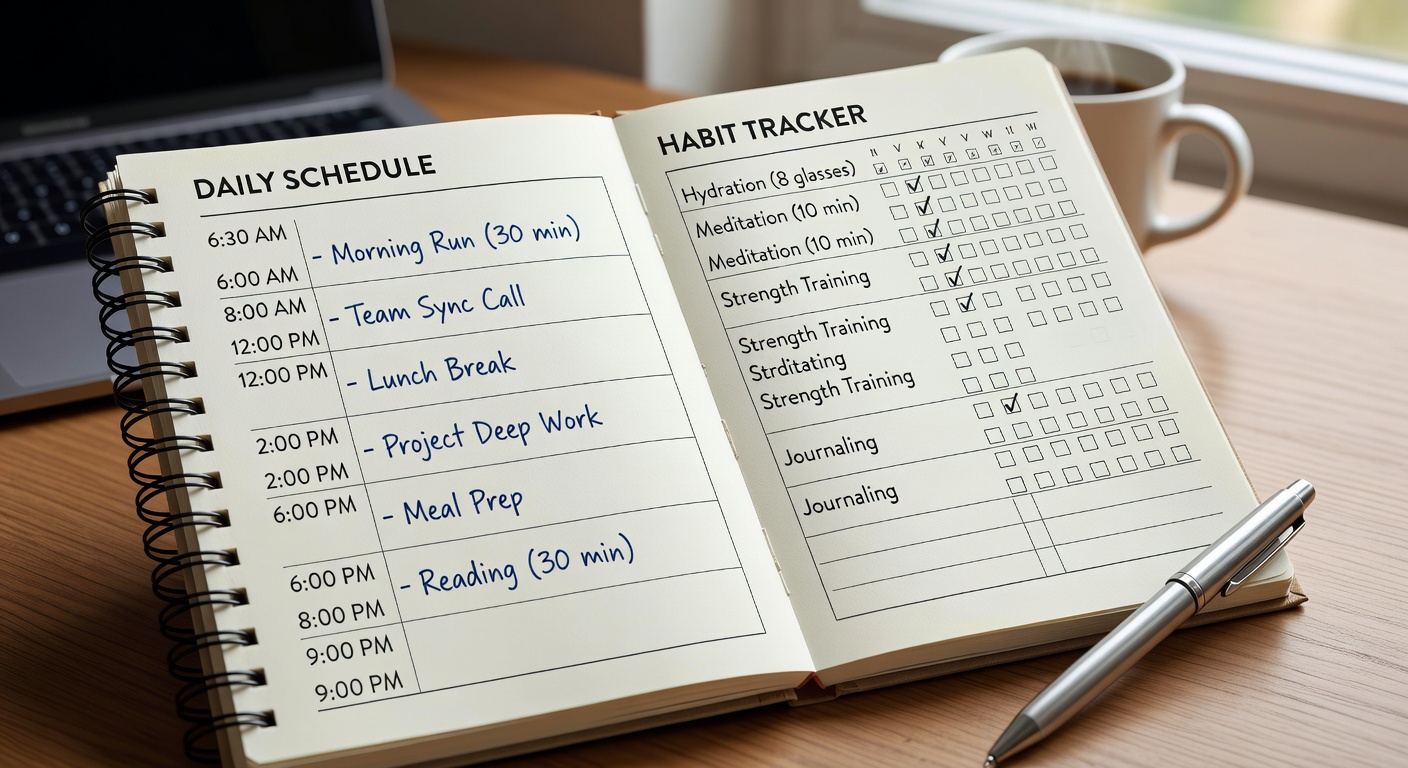 DAILY SCHEDULE
6:30 AM
- Morning Run (30 min)
6:00 AM
8:00 AM
- Team Sync Call
12:00 PM
12:00 PM
- Lunch Break
2:00 PM
- Project Deep Work
2:00 PM
6:00 PM
- Meal Prep
6:00 PM
- Reading (30 min)
8:00 PM
9:00 PM
9:00 PM
HABIT TRACKER
Hydration (8 glasses)
Meditation (10 min)
Meditation (10 min)
Strength Training
Strength Training
Strditating
Strength Training
Journaling
Journaling